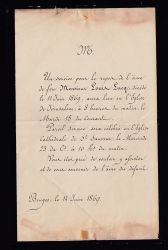 M.
Un service pour le repos de l'âme
de feu Monsieur Louis décédé
le 11 Juin 1869, aura lieu en l'Eglise
de Jérusalem, à 9 heures du matin, le
Mardi 15 du Courant.
Pareil service sera célébré en l'Eglise
Cathédrale de St Sauveur, le Mercredi
23 du Ct à 10 hrs du matin.
Vous êtes prié de vouloir y assister
et de vous souvenir de l'âme du défunt.
Bruges, le 14 Juin 1869.